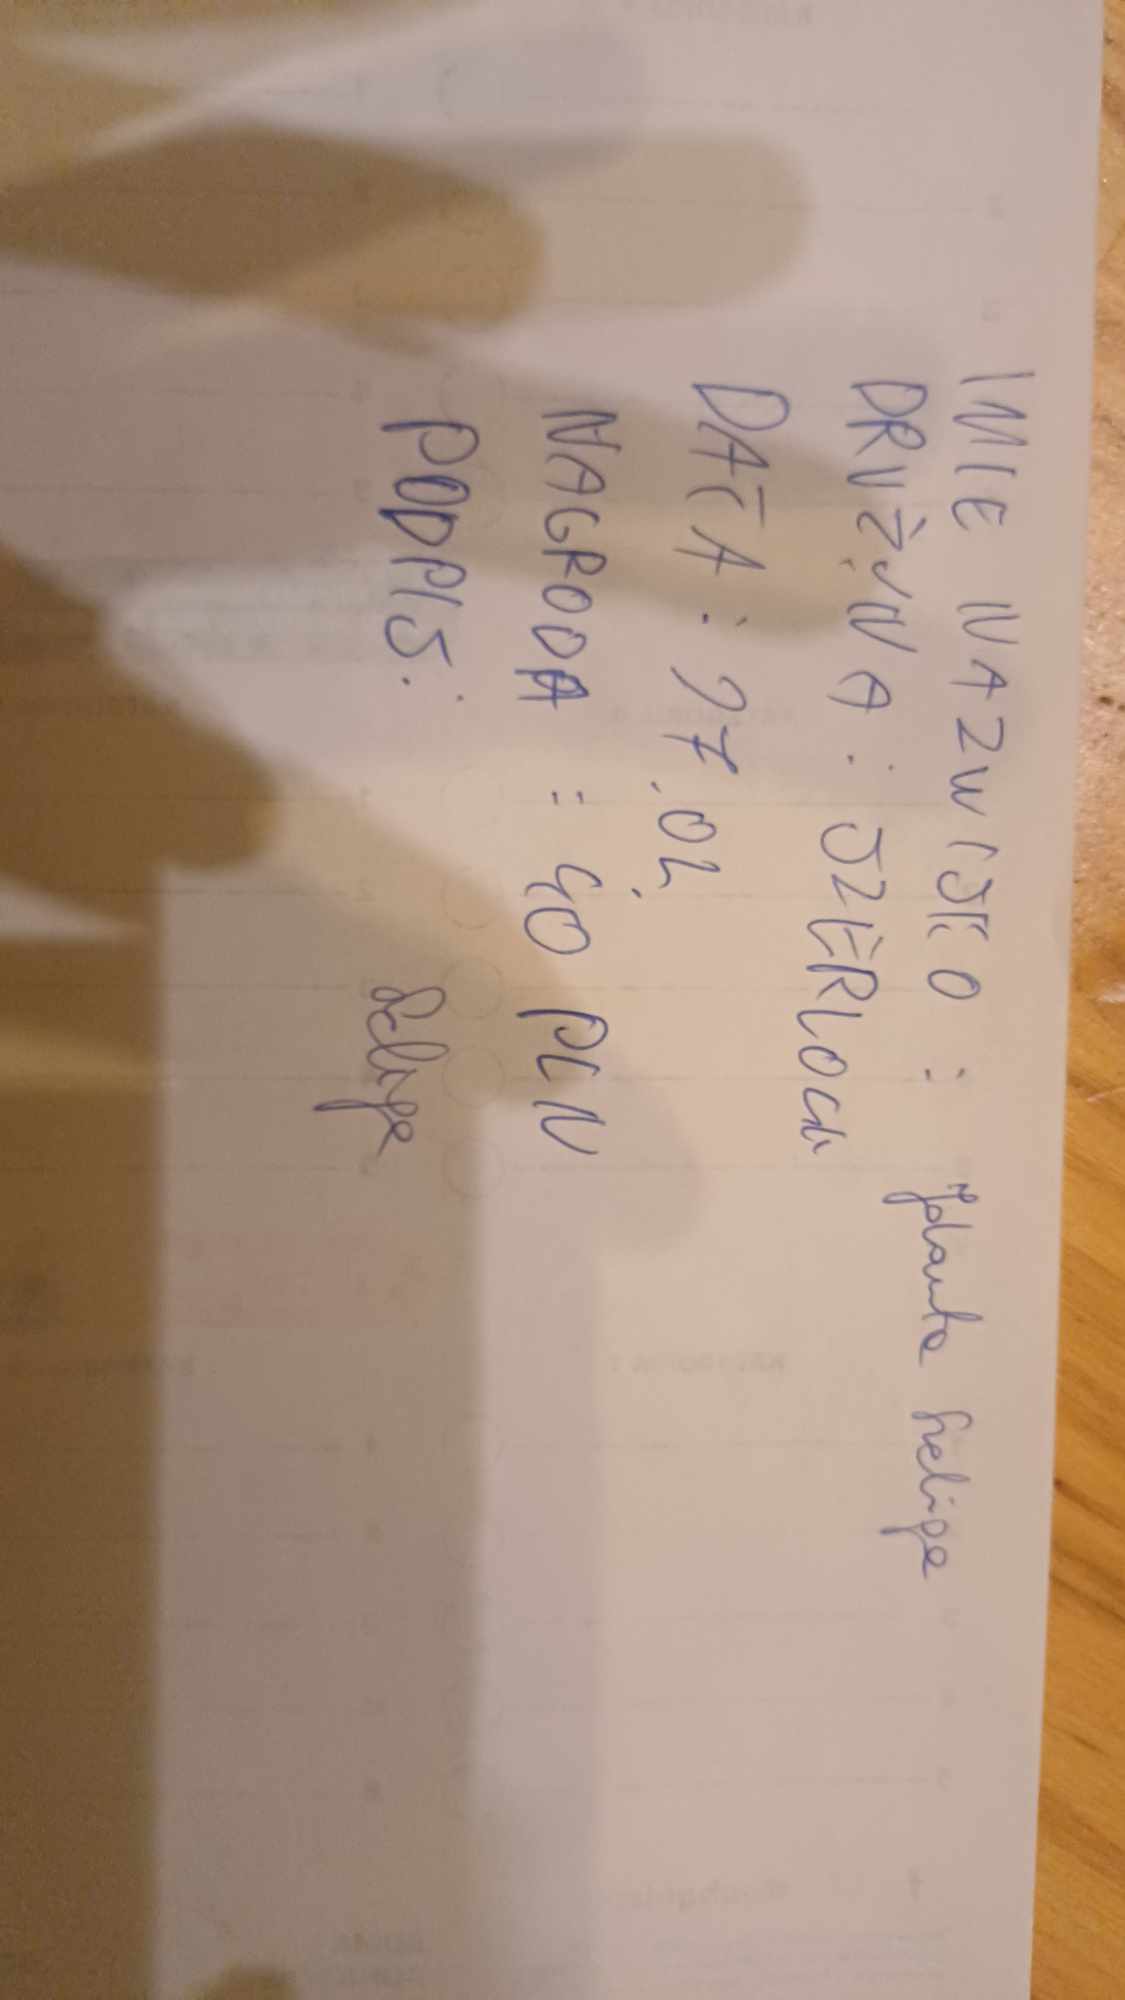 IMIE NAZWISKO : Jolanta Seliga
DRUŻYNA : SZERLOCK
DATA : 27.02
NAGRODA : 40 PLN
PODPIS : Seliga